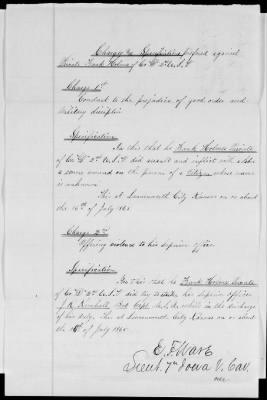 Charges and Specifications preferred against
Private Frank Holmes of Co "D" 2d U.S.V
Charge 1st
Conduct to the prejudice of good order and
military discipline
Specification
In this that he Frank Holmes Private
of Co "D" 2d U.S.V did assault and inflict with a
a severe wound on the person of a Citizen whose name
is unknown
This at Leavenworth City Kansas on or about
the 16th of July 1865
Charge 2d
Offering violence to his superior officer
Specification
In this that he Frank Holmes Private
of Co "D" 2d U.S.V did his superior officer
J. R. Kimball Capt. while in the discharge
of his duty, this at Leavenworth City Kansas on or about
the 16th of July 1865
E. F. Ware
Lieut. 7th Iowa V. Cav.